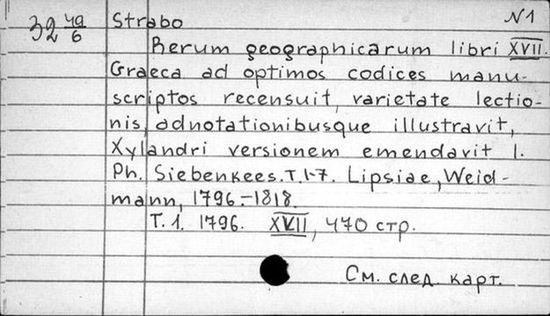 32 49/6 Strabo N1
Rerum geographicarum libri XVII.
Graeca ad optimos codices manu-
scriptos recensuit, varietate lectio-
nis, adnotationibusque illustravit,
Xylandri versionem emendavit I.
Ph. Siebenkees. T. 1-7. Lipsiae, Weid-
mann, 1796.-1818.
T. 1. 1796. XVII, 470 стр.
См. след. карт.